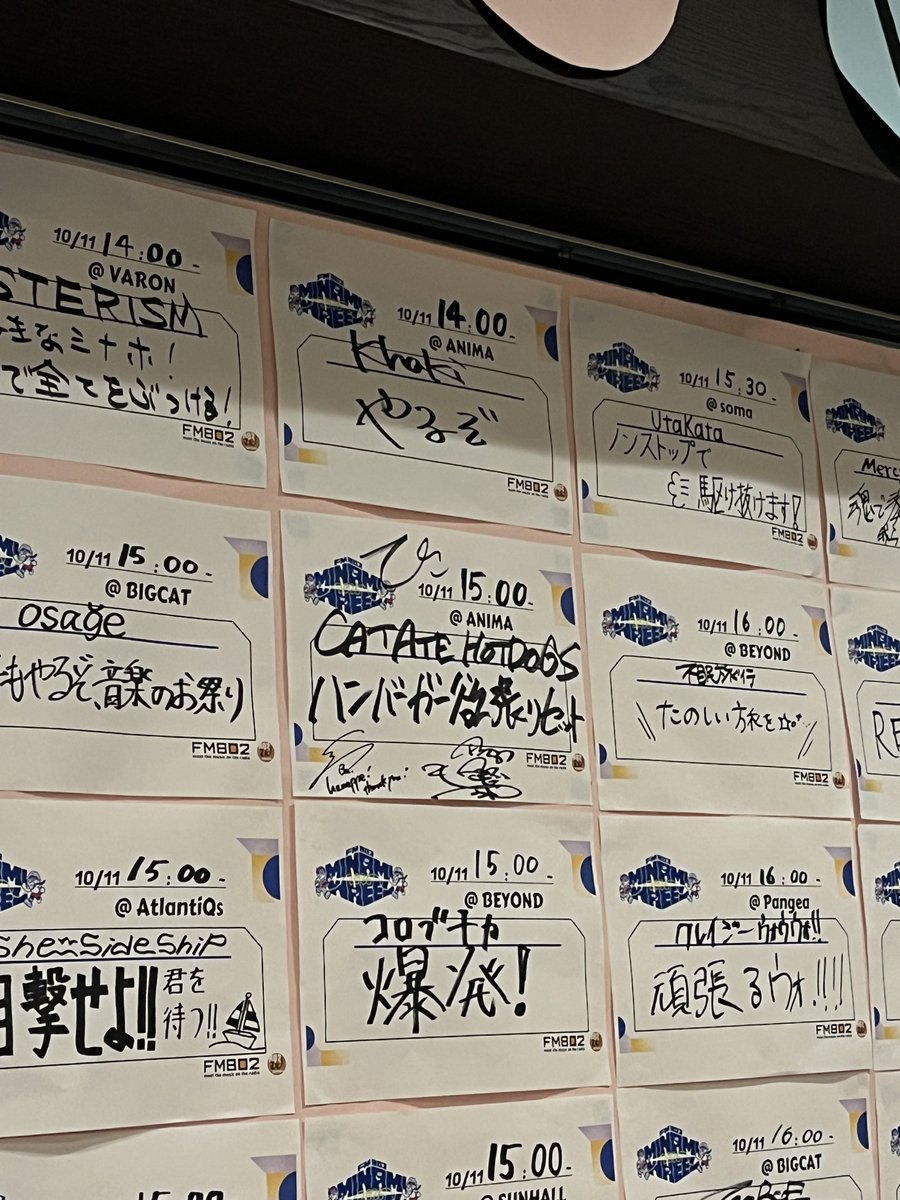 10/11 14:00-
@ VARON
STERISM
きなミナホ!
で全てをぶつける!
FM802
MINAMI WHEEL
10/11 14:00-
@ ANIMA
Khaki
やるぞ
FM802
MINAMI WHEEL
10/11 15:30-
@ soma
UtaKata
ノンストップで
駆け抜けます!
FM802
MINAMI WHEEL
Merc
魂で
10/11 15:00-
@ BIGCAT
osage
もやるぞ、音楽のお祭り
FM802
MINAMI WHEEL
10/11 15:00-
@ ANIMA
CAT ATE HOTDOGS
ハンバーガー欲張りセット
FM802
MINAMI WHEEL
10/11 16:00-
@ BEYOND
たのしい方を
FM802
RE
10/11 15:00-
@ AtlantiQs
She's Side Ship
目撃せよ!!
君を
待つ!!
FM802
MINAMI WHEEL
10/11 15:00-
@ BEYOND
コロブチカ
爆発!
FM802
MINAMI WHEEL
10/11 16:00-
@ Pangea
クレイジーウォウウォ!!
頑張るウォ!!!!
FM802
15:00-
MINAMI WHEEL
10/11 15:00-
@ SUNHALL
MINAMI WHEEL
10/11 16:00-
@ BIGCAT